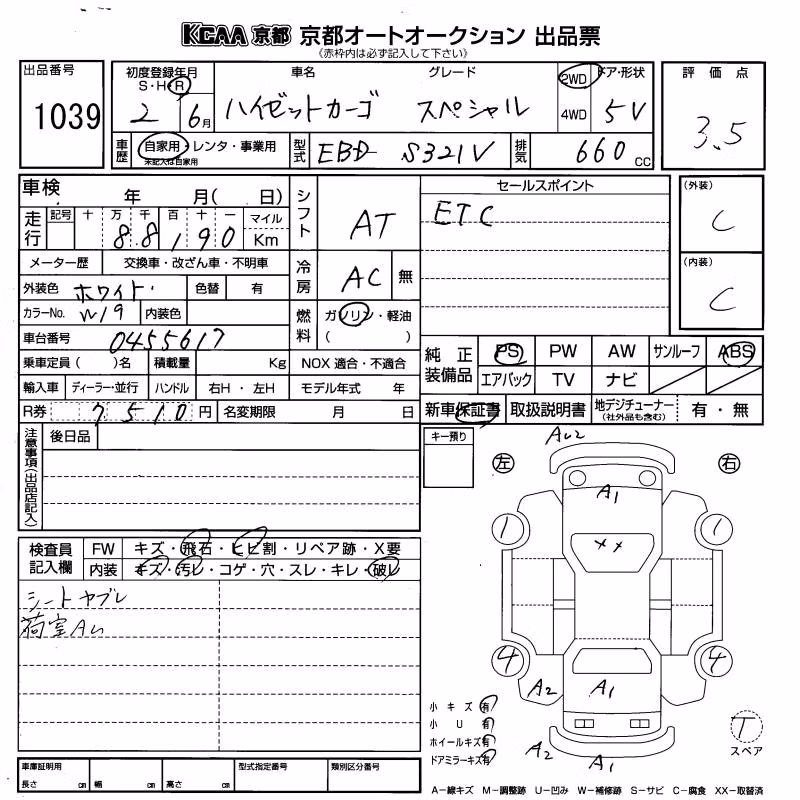 KCAA 京都 京都オートオークション 出品票
(赤枠内は必ず記入して下さい)
出品番号
1039
初度登録年月
S・H・R
2 6月
車名 グレード
ハイゼットカーゴ スペシャル
2WD
4WD
ドア・形状
5V
評価点
3.5
車歴
自家用・レンタ・事業用
未記入は自家用
型式
EBD S321V
排気
660 CC
車検 年 月( 日)
走行
記号 十 万 千 百 十 一 マイル
8 8 1 9 0 Km
メーター歴 交換車・改ざん車・不明車
外装色 ホワイト 色替 有
カラーNo. W19 内装色
車台番号 0455617
乗車定員( )名 積載量 Kg NOX 適合・不適合
輸入車 ディーラー・並行 ハンドル 右H・左H モデル年式 年
R券 7510円 名変期限 月 日
シフト AT
冷房 AC 無
燃料 ガソリン・軽油
( )
セールスポイント
ETC
(外装)
C
(内装)
C
純正装備品
PS PW AW サンルーフ ABS
エアバック TV ナビ
新車保証書 取扱説明書 地デジチューナー
(社外品も含む)
有・無
注意事項(出品店記入)
後日品
キー預り
検査員記入欄
FW キズ・飛石・ヒビ割・リペア跡・X要
内装 キズ・汚レ・コゲ・穴・スレ・キレ・破レ
シートヤブレ
左 右
A1
××
1 1
4 4
A2 A1
A2 A1
小キズ有
小U有
ホイールキズ有
ドアミラーキズ有
T
スペア
車庫証明用
長さ cm 幅 cm 高さ cm
型式指定番号
類別区分番号
A−線キズ M−調整跡 U−凹み W−補修跡 S−サビ C−腐食 XX−取替済